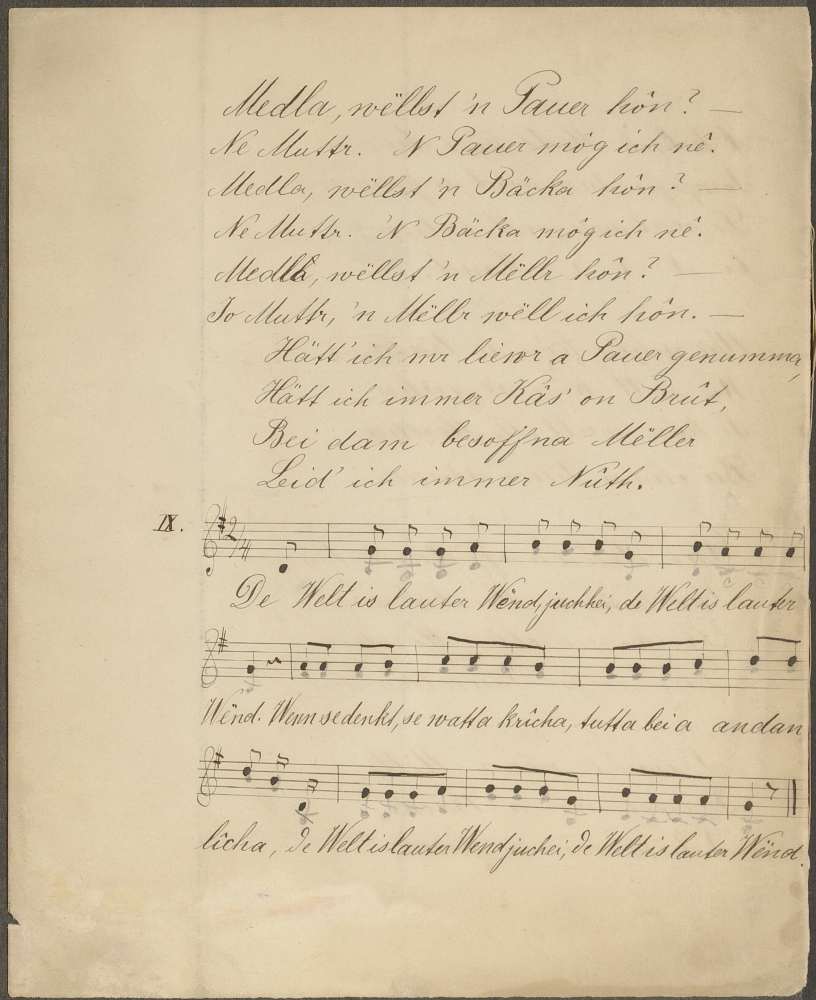 Medla, wëllst 'n Pauer hôn? —
Ne Muttr. 'N Pauer môg ich nê.
Medla, wëllst 'n Bäcka hôn? —
Ne Muttr. 'N Bäcka môg ich nê.
Medla, wëllst 'n Mëllr hôn? —
Jo Muttr, 'n Mëllr wëll ich hôn. —
Hätt' ich mr liewr a Pauer genumma,
Hätt ich immer Käs' on Brût,
Bei dam besoffna Mëller
Leid' ich immer Nûth.
IX.
2/4
De Welt is lauter Wënd, juchhei, de Welt is lauter
Wënd. Wenn se denkt, se watta krîcha, tutta bei a andan
lîcha, de Welt is lauter Wend juchei, de Welt is lauter Wënd.